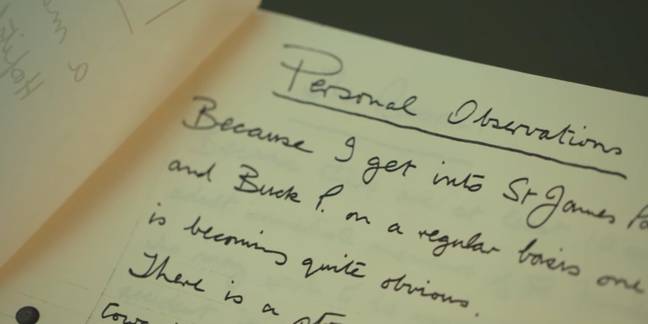 Personal Observations
Because I get into St James
and Buck P. on a regular basis one
is becoming quite obvious.
There is a